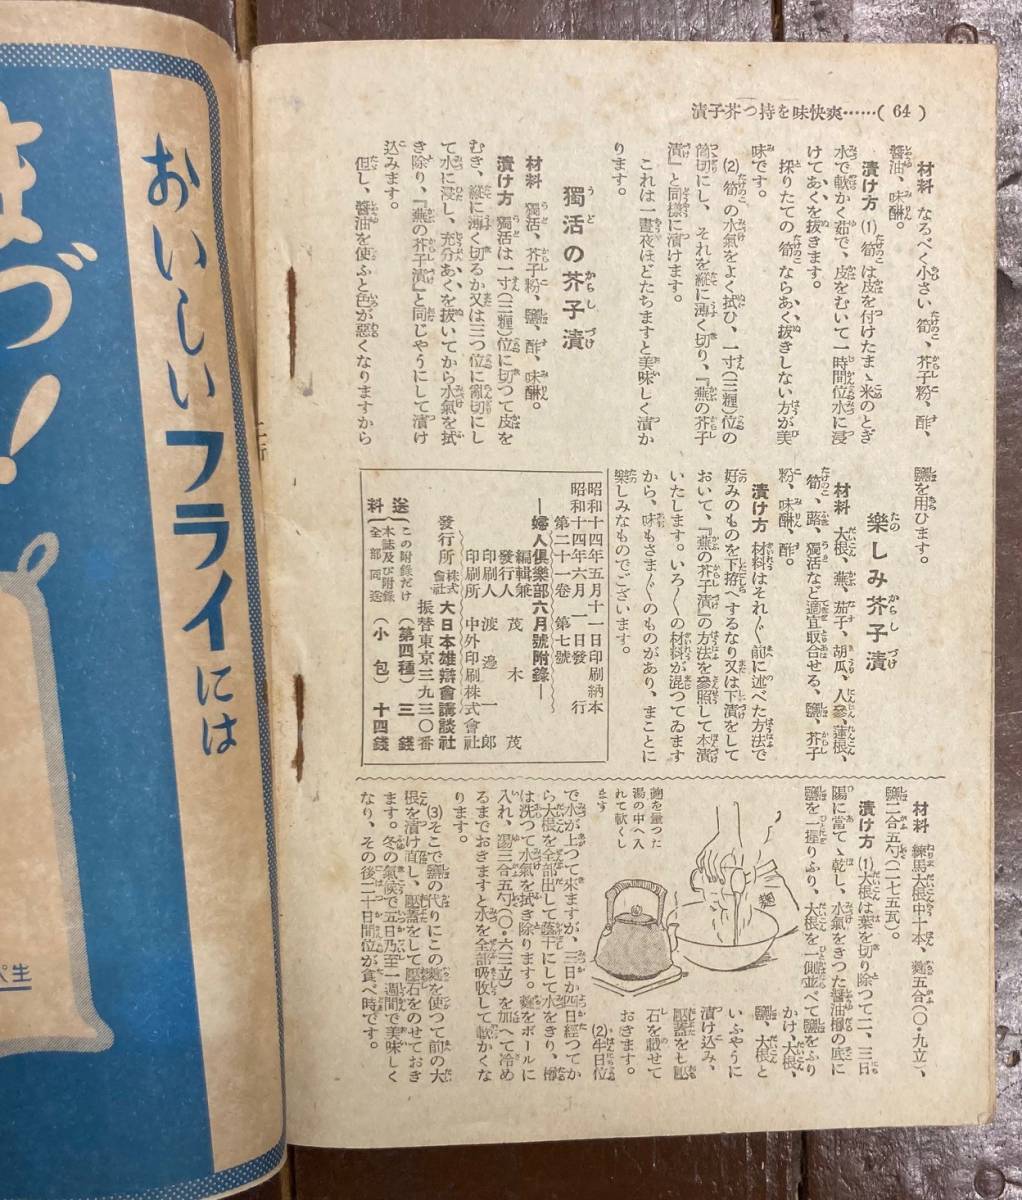 漬子芥つ持を味快爽……( 64 )
材料 なるべく小さい筍、芥子粉、酢、
醤油、味醂。
漬け方 (1)筍は皮を付けたまゝ米のとぎ
水で軟かく茹で、皮をむいて一時間位水に浸
けてあくを抜きます。
採りたての筍ならあく抜きしない方が美
味です。
(2)筍の水氣をよく拭ひ、一寸(三糎)位の
筒切にし、それを縦に薄く切り、『蕪の芥子
漬』と同様に漬けます。
これは一晝夜ほどたちますと美味しく漬か
ります。
獨活の芥子漬
材料 獨活、芥子粉、鹽、酢、味醂。
漬け方 獨活は一寸(三糎)位に切つて皮を
むき、縦に薄く切るか又は三つ位に亂切にし
て水に浸し、充分あくを抜いてから水氣を拭
き除り、『蕪の芥子漬』と同じやうにして漬け
込みます。
但し、醤油を使ふと色が惡くなりますから
鹽を用ひます。
樂しみ芥子漬
材料 大根、蕪、茄子、胡瓜、人參、蓮根、
筍、蕗、獨活など適宜取合せる、鹽、芥子
粉、味醂、酢。
漬け方 材料はそれ〴〵前に述べた方法で
好みのものを下拵へするなり又は下漬をして
おいて、『蕪の芥子漬』の方法を參照して本漬
いたします。いろ〳〵の材料が混つてゐます
から、味もさま〴〵のものがあり、まことに
樂しみなものでございます。
昭和十四年五月十一日印刷納本
昭和十四年六月一日發行
第二十一卷 第七號
―婦人倶樂部六月號附錄―
編輯兼發行人 茂木茂
印刷人 渡邉一郎
印刷所 中外印刷株式會社
發行所 株式會社 大日本雄辯會講談社
振替東京三九三〇番
送料 この附錄だけ(第四種)三錢
本誌及び附錄全部同送(小包)十四錢
材料 練馬大根中十本、麹五合(〇・九立)、
鹽二合五勺(二七五瓦)。
漬け方 (1)大根は葉を切り除つて二、三日
陽に當てゝ乾し、水氣をきつた醤油樽の底に
鹽を一握りふり、大根を一側並べて鹽をふり
かけ、大根、
鹽、大根と
いふやうに
漬け込み、
壓蓋をし壓
石を載せて
おきます。
(2)半日位
麹
麹を量つた
湯の中へ入
れて軟くし
ます
で水が上つて來ますが、三日か四日經つてか
ら大根を全部出して蔭干にして水をきり、樽
は洗つて水氣を拭き除ります。麹をボールに
入れ、湯三合五勺(〇・六三立)を加へて冷め
るまでおきますと水を全部吸收して軟かくな
ります。
(3)そこで鹽の代りにこの麹を使つて前の大
根を漬け直し、壓蓋をして壓石をのせておき
ます。冬の氣候で五日乃至一週間で美味しく
なり、その後二十日間位が食べ時です。
おいしいフライには
づ!